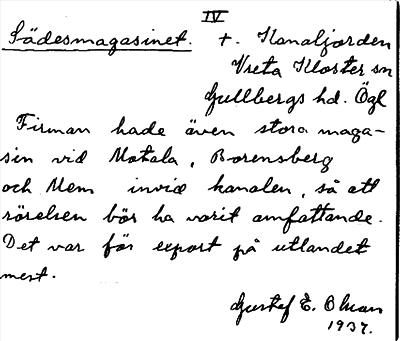 IV
Sädesmagasinet. t. Kanaljorden
Vreta Kloster sn
Gullbergs hd. Ögl
Firman hade även stora maga-
sin vid Motala, Borensberg
och Mem invid kanalen, så att
rörelsen bör ha varit omfattande.
Det var för export på utlandet
mest.
Gustef E. Ohman
1937.